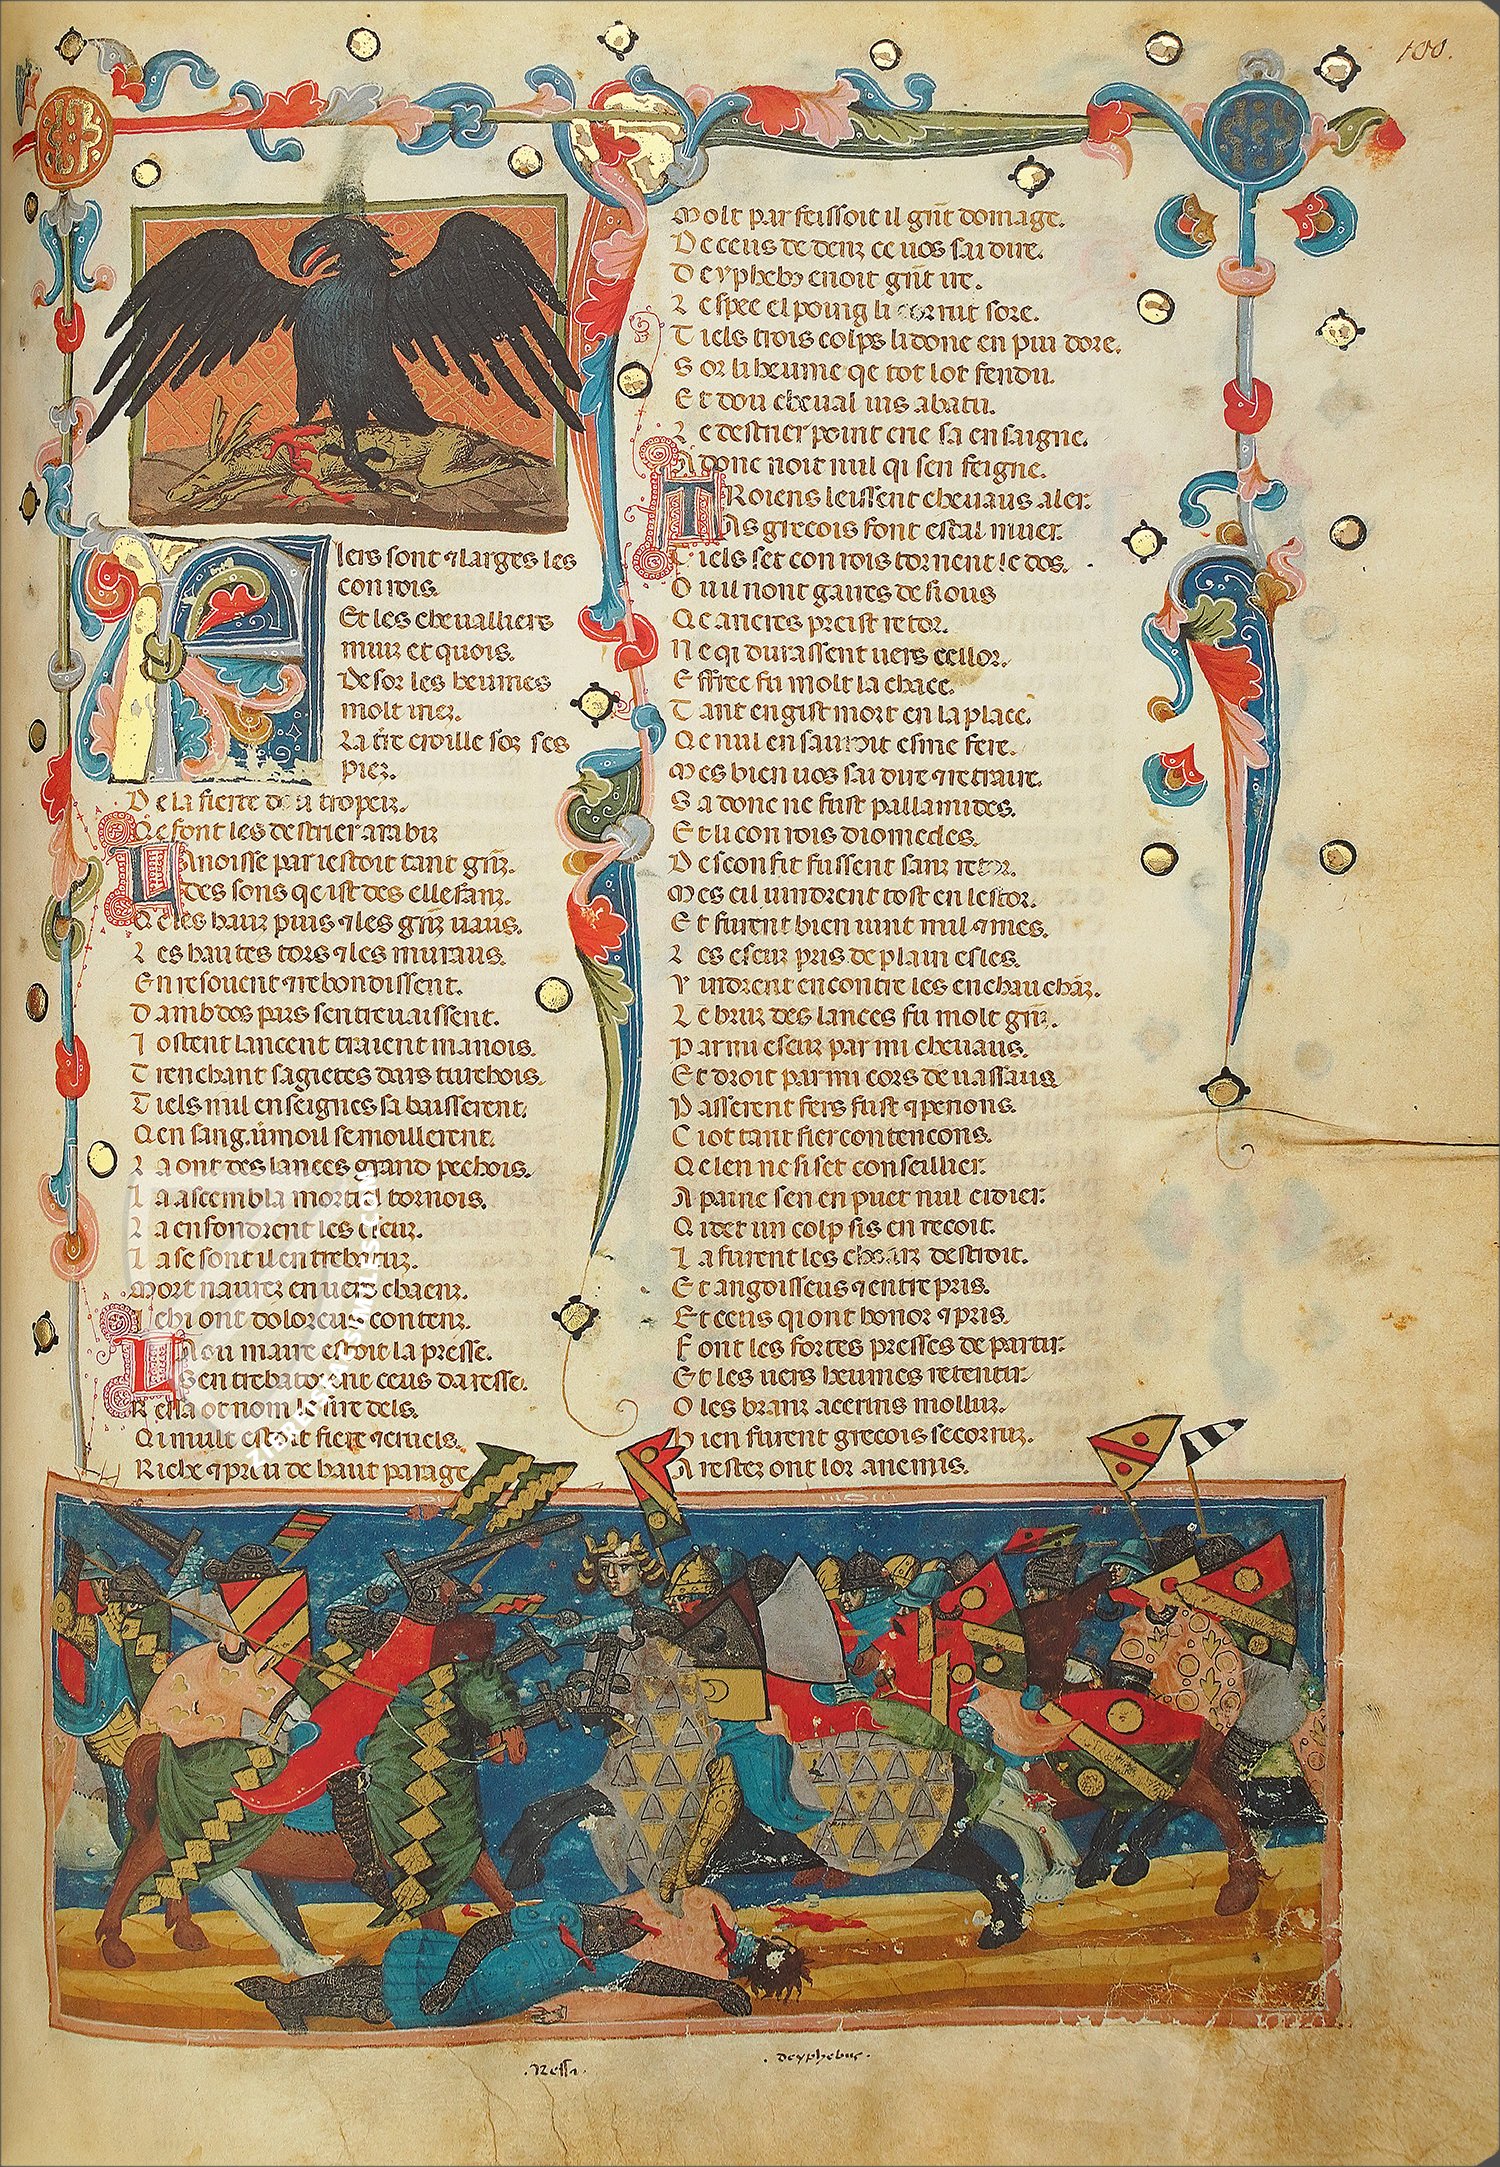 100.
Fiers sont ⁊ larges les
conrois.
Et les cheualliers
muiz et quois.
Desor les heumes
molt mez.
La tre croille soz ses
piez.
De la fierte dou tropeiz.
Qe font les destrier arabiz
La noisse par iestoit tant gñz.
Des sons qe ist des ellefanz.
Qe les hauz puis ⁊ les gñz uaus.
Les hautes tors ⁊ les muraus.
En resouent ⁊ rebondissent.
Dambdos pars sentreuaissent.
Iostent lancent traient manois.
Trenchant sagietes dars turchois.
Tiels mil enseignes sabaisserent.
Qen sang uimoil se moullerent.
La ont des lances grand pechois.
La ascembla mortiel tornois.
La enfondrent les escuz.
La se sont il entrebatuz.
Mort naurez enuers chaenz.
Ichi ont doloreus contenz.
La ou maire estoit la presse.
Sentrebatoient ceus daresse.
Ressa ot nom le sire dels.
Qi mult estoit fiere ⁊ cruiels.
Riche ⁊ preu de haut parage
Molt par feissoit il gñt domage.
De ceus de denz ce uos sai dire.
Deyphebꝫ enoit gñt ire.
Lespee el poing li cornit sore.
Tiels trois colps li done en piu dore.
Sor li heume qe tot lot fendu.
Et dou cheual ius abatu.
Le destrier point crie sa ensaigne.
Adonc noit nul qi sen feigne.
TRoiens leissent cheuaus aler.
As grecois font estal muer.
Tiels set conrois tornent le dos.
Ou il nont gaires de lious
Qe ancres preist retor.
Ne qi durassent uers cellor.
Effree fu molt la chace.
Tant en gist mort en la place.
Qe nul en sauroit esme fere.
Mes bien uos sai dire ⁊ retraire.
Sadonc ne fust pallamides.
Et li conrois diomedes.
Desconfit fussent sanz retor.
Mes cil uindrent tost en lestor.
Et furent bien uint mil ⁊ mes.
Les escuz pris de plain esles.
Vindrent encontre les enchauchāz.
Le bruiz des lances fu molt gñz.
Parmi escuz parmi cheuaus.
Et droit parmi cors de uassaus
Passerent fers fust ⁊ penons.
Ciot tant fier contencons.
Qe len ne si set conseillier.
A paine sen en puet nul eidier.
Qi der un colp sis en recoit.
La furent les chears destroit.
Et angoisseus ⁊ entrepris.
Et ceus qi ont honor ⁊ pris.
Font les fortes presses departir.
Et les uers heumes retentir.
O les branz acerins molluz.
Bien furent grecois secorruz.
Arestez ont lor anemis.
.Ressa.
.deyphebus.
ZIEREISFACSIMILES.COM